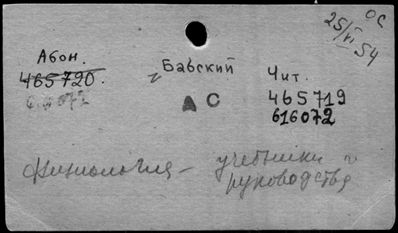 ОС
25/VI 54
Абон.
465720.
616072
Бавский
Чит.
465719
616072
АС
Физиология – учебники и
руководства